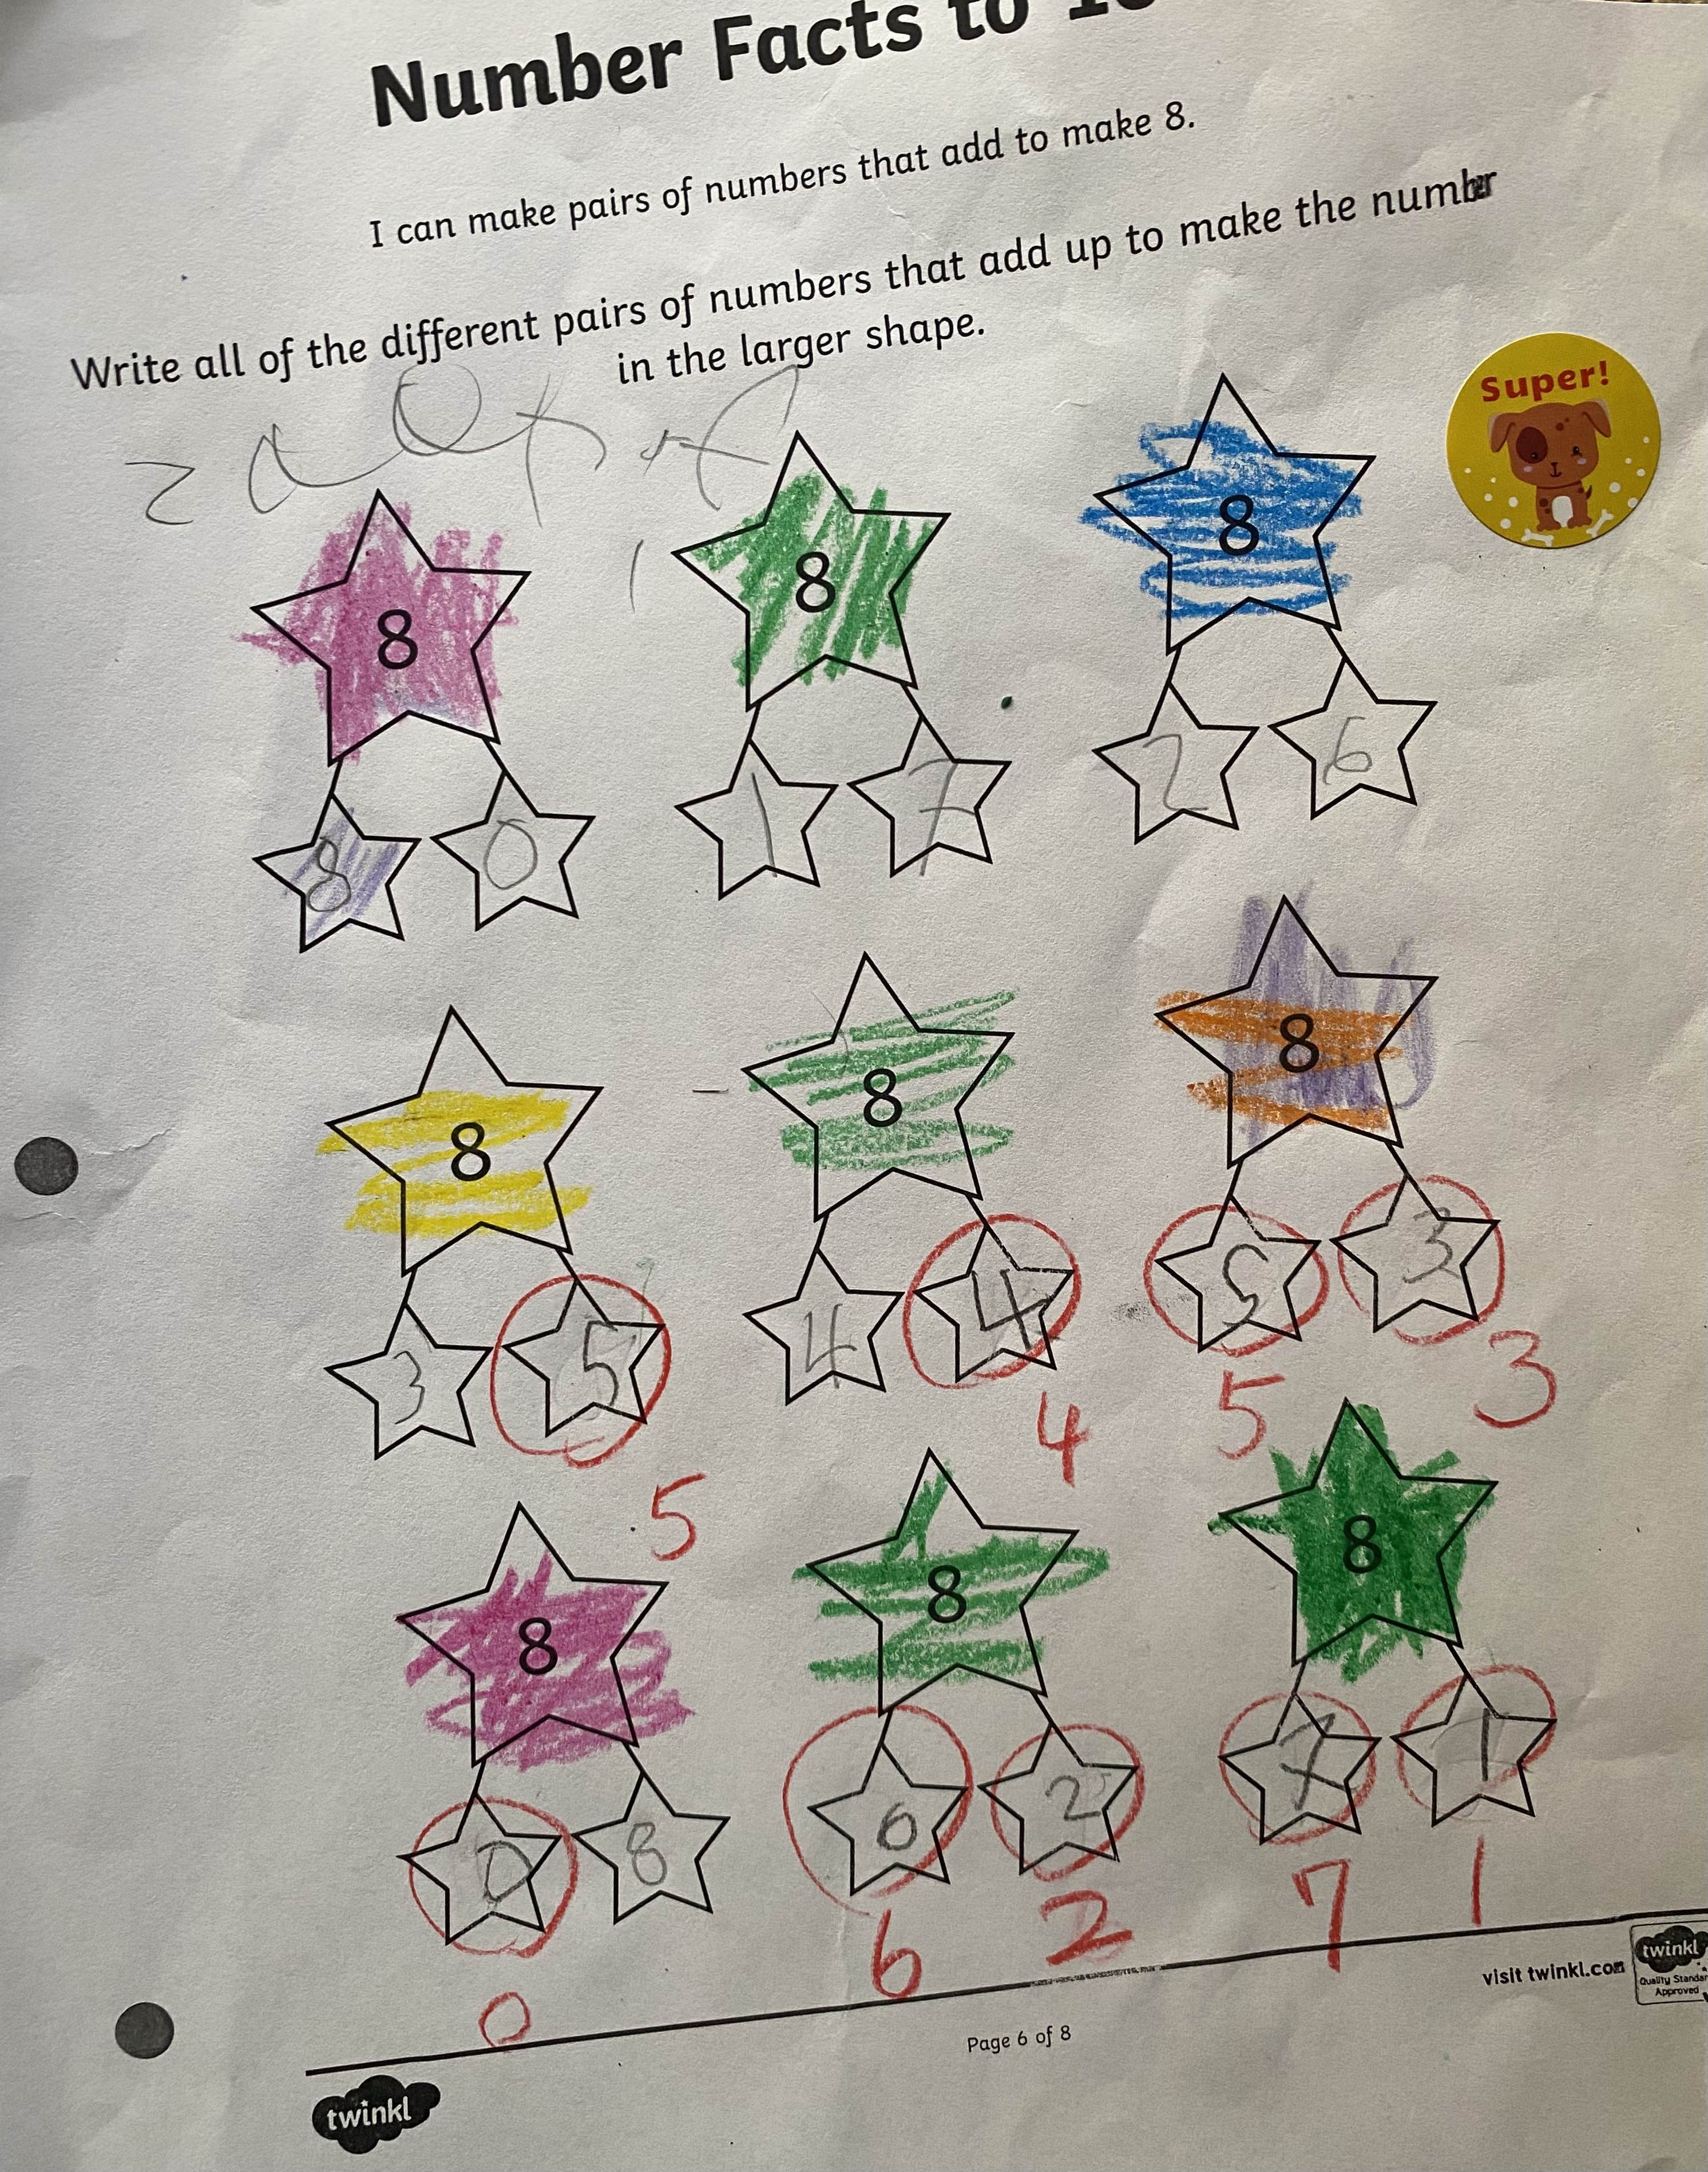 Number Facts to 10
I can make pairs of numbers that add to make 8.
Write all of the different pairs of numbers that add up to make the number
in the larger shape.
Super!
8 8 8
8 0 1 7 2 6
8 8 8
3 5 4 4 5 3
5 4 5 3
8 8 8
0 8 6 2 7 1
0 6 2 7 1
visit twinkl.com
twinkl
Quality Standard
Approved
Page 6 of 8
twinkl